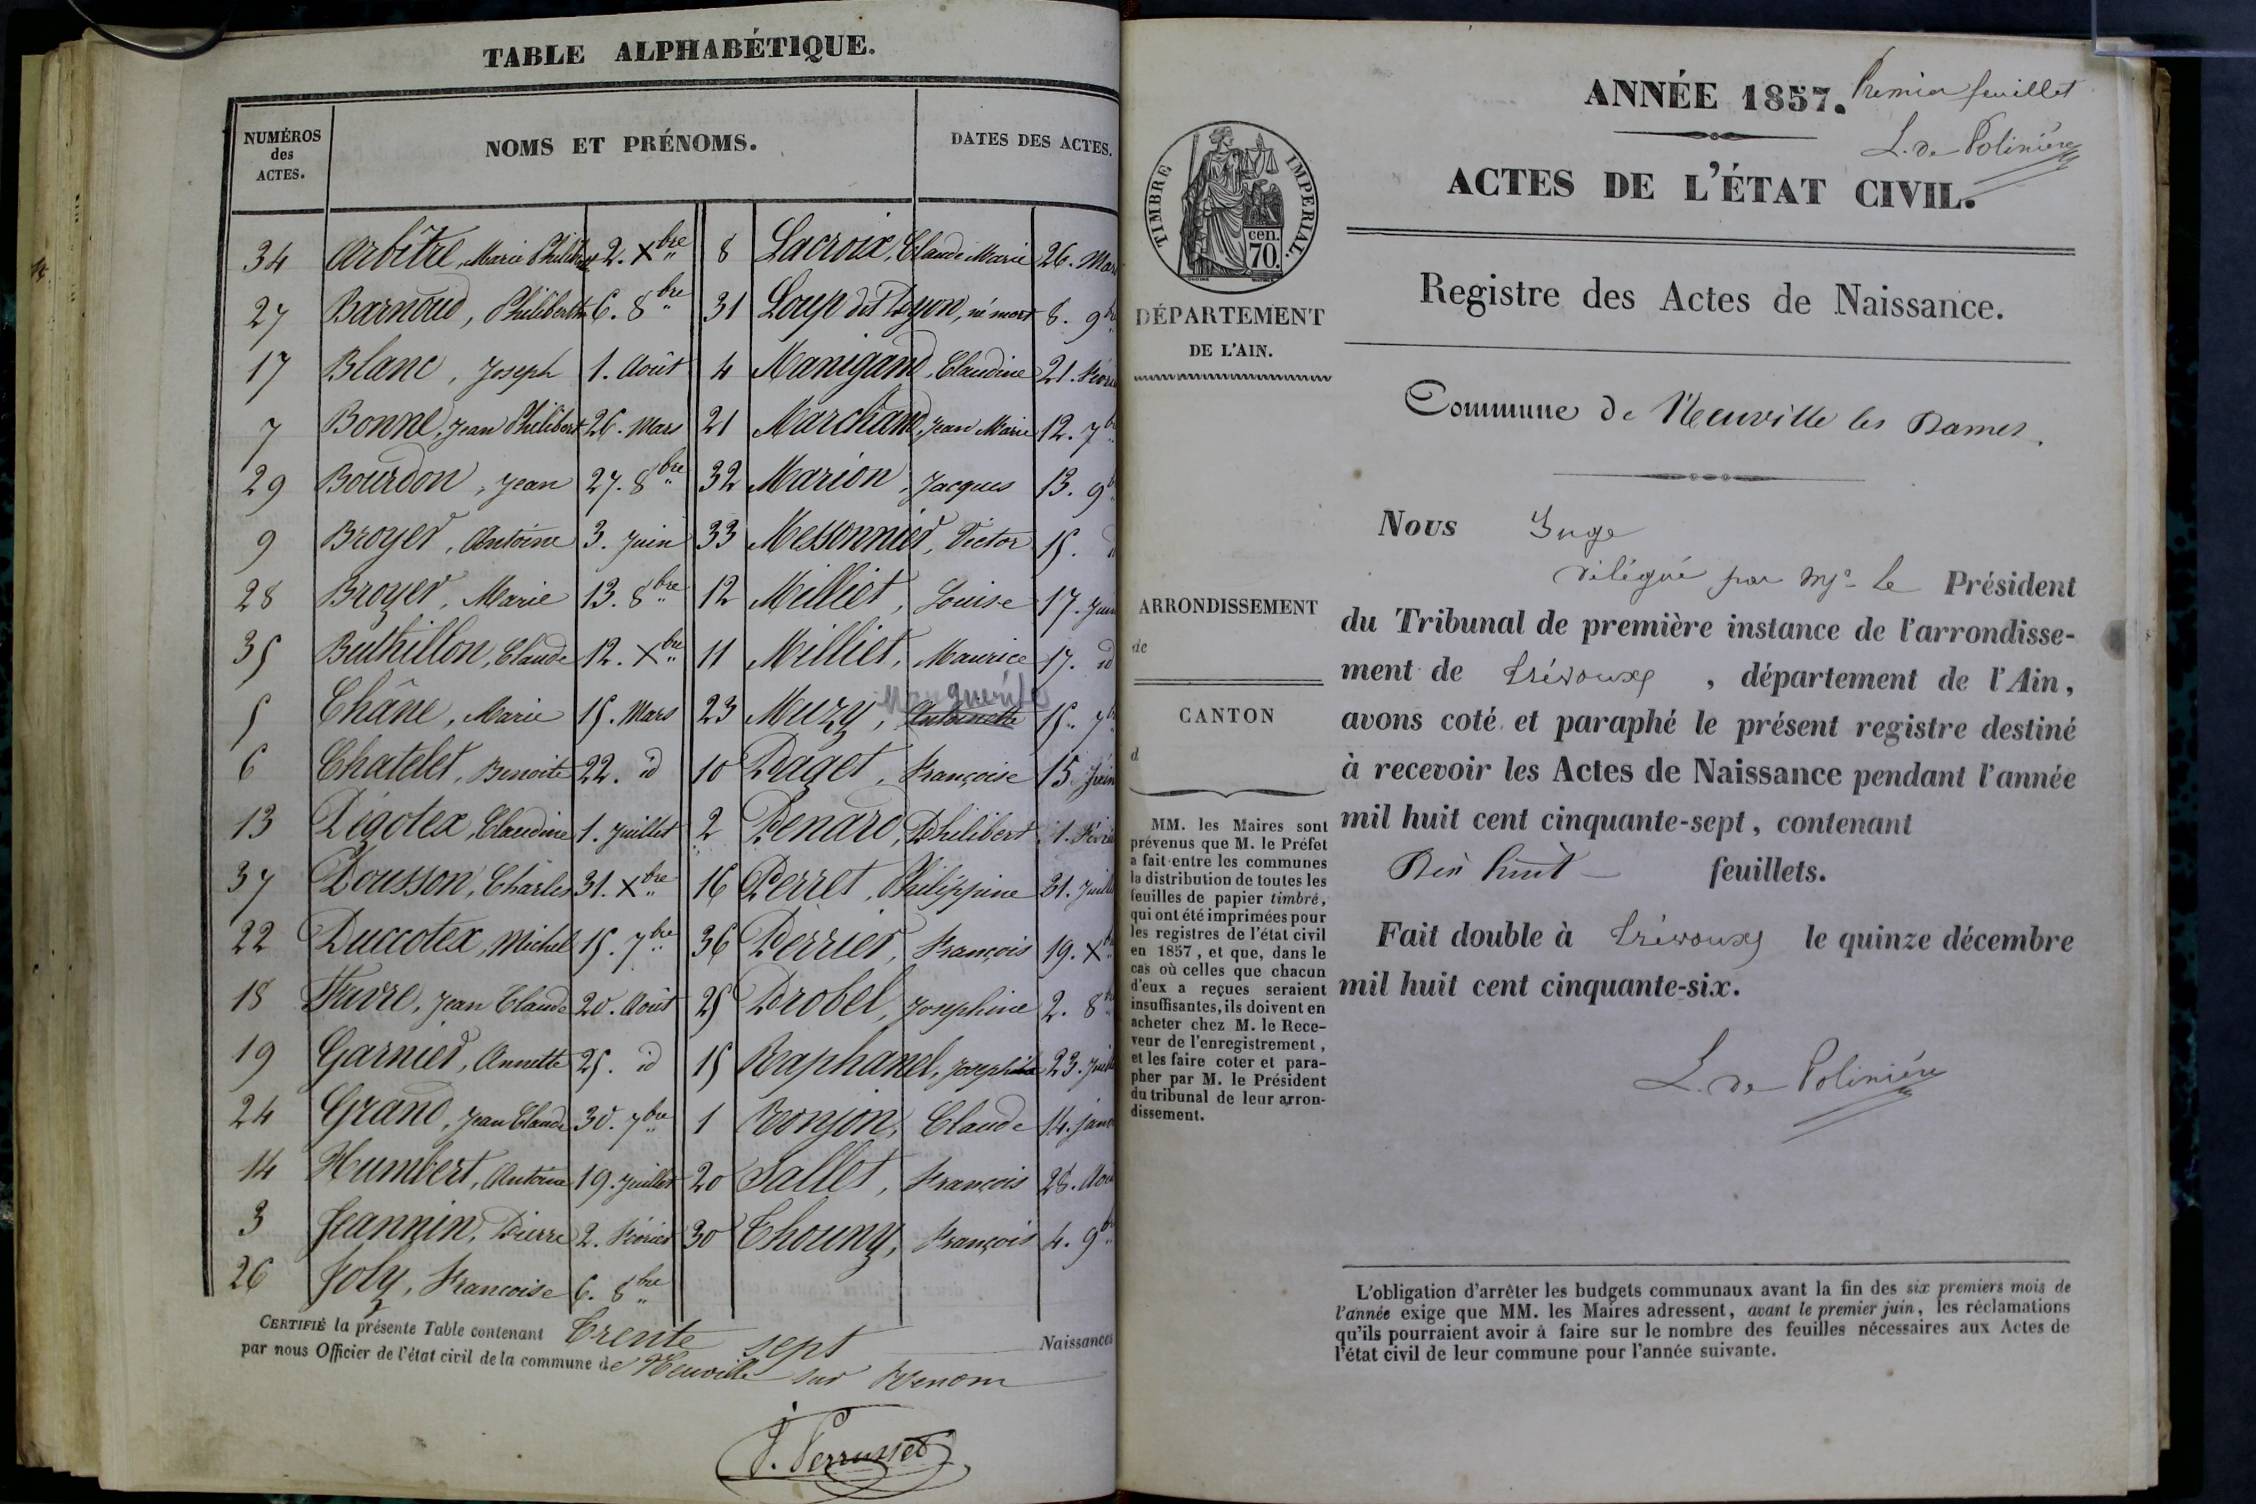 TABLE ALPHABÉTIQUE.
NUMÉROS des ACTES.
NOMS ET PRÉNOMS.
DATES DES ACTES.
34 Arbître, Marie 2. Xbre
27 Barnoud, Philiberte 6. 8bre
17 Blanc, Joseph 1. Août
7 Bonne, Jean Philibert 26. Mars
29 Bourdon, Jean 27. 8bre
9 Broyer, Antoine 3. Juin
28 Broyer, Marie 13. 8bre
35 Buthillon, Claude 12. Xbre
5 Châne, Marie 15. Mars
6 Chatelet, Benoite 22. id
13 Dégotex, Claudine 1. Juillet
37 Dousson, Charles 31. Xbre
22 Duccotex, Michel 15. 7bre
18 Favre, Jean Claude 20. Août
19 Garnier, Annette 25. id
24 Grand, Jean Claude 30. 7bre
14 Humbert, Antoine 19. Juillet
3 Jeannin, Pierre 2. Février
26 Joly, Francoise 6. 8bre
8 Lacroix, Claude Marie 26. Mar
31 Loup dit Dyon, né mort 8. 9b
4 Manigand, Claudine 21. Févri
21 Marchand, Jean Marie 12. 7b
32 Marion, Jacques 13. 9b
33 Messonnier, Victor 15. id
12 Milliet, Louise 17. Juin
11 Milliet, Maurice 17. id
Marguerite
23 Muzy, Antoinette 15. 7b
10 Paget, Françoise 15. Juin
2 Penard, Philibert 1. Févrie
16 Perret, Philippine 31. Juill
36 Perrier, François 19. Xb
25 Probel, Josephine 2. 8b
15 Raphanel, 23. Juill
1 Ronjon, Claude 14. janv
20 Sallet, François 28. Aou
30 Thouny, François 4. 9b
CERTIFIÉ la présente Table contenant Trente sept Naissances
par nous Officier de l'état civil de la commune de Neuville sur Renom
J. Perrusset
ANNÉE 1857.
Premier feuillet
L. de Polinière
ACTES DE L'ÉTAT CIVIL.
TIMBRE IMPERIAL.
cen.
70.
DÉPARTEMENT
DE L'AIN.
ARRONDISSEMENT
de
CANTON
d
MM. les Maires sont
prévenus que M. le Préfet
a fait entre les communes
la distribution de toutes les
feuilles de papier timbré,
qui ont été imprimées pour
les registres de l'état civil
en 1857, et que, dans le
cas où celles que chacun
d'eux a reçues seraient
insuffisantes, ils doivent en
acheter chez M. le Rece-
veur de l'enregistrement,
et les faire coter et para-
pher par M. le Président
du tribunal de leur arron-
dissement.
Registre des Actes de Naissance.
Commune de Neuville les Dames.
Nous Juge
délégué par Mr le Président
du Tribunal de première instance de l'arrondisse-
ment de Trévoux, département de l'Ain,
avons coté et paraphé le présent registre destiné
à recevoir les Actes de Naissance pendant l'année
mil huit cent cinquante-sept, contenant
Dix huit feuillets.
Fait double à Trévoux le quinze décembre
mil huit cent cinquante-six.
L. de Polinière
L'obligation d'arrêter les budgets communaux avant la fin des six premiers mois de
l'année exige que MM. les Maires adressent, avant le premier juin, les réclamations
qu'ils pourraient avoir à faire sur le nombre des feuilles nécessaires aux Actes de
l'état civil de leur commune pour l'année suivante.